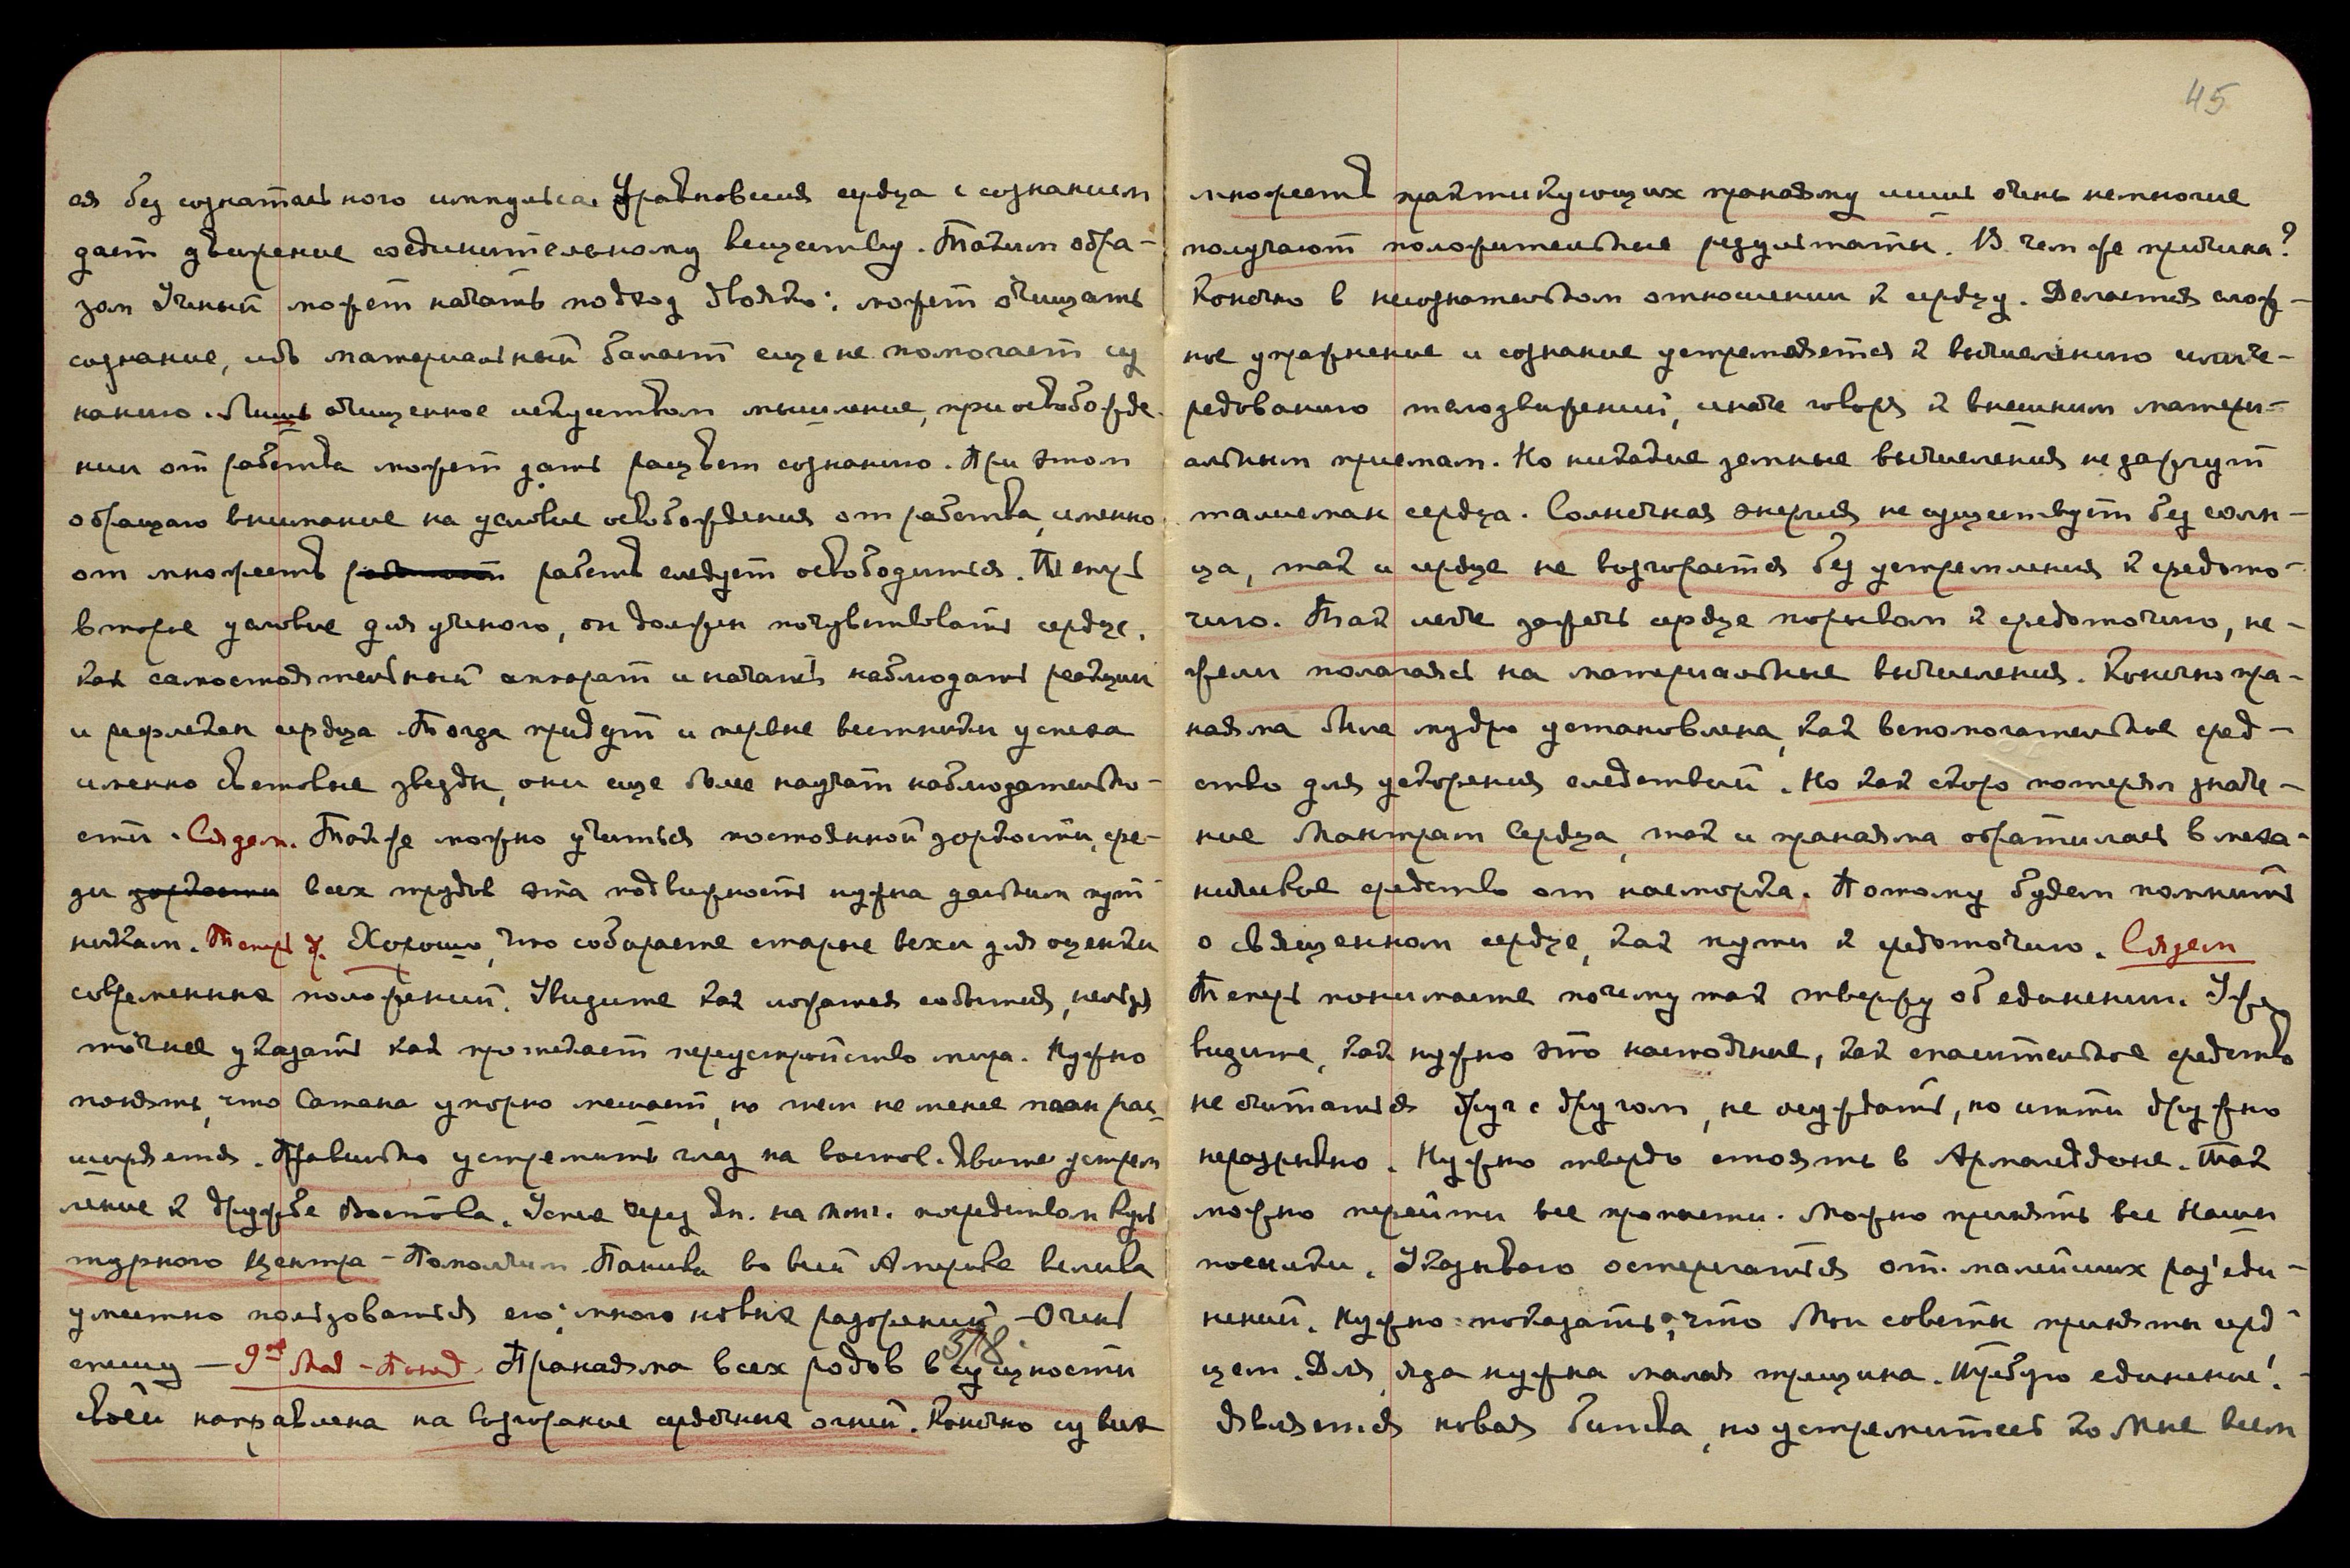 ся без сознательного импульса. Уравновесия сердца с сознанием
дает движение соединительному веществу. Таким обра-
зом Ученый может начать подход двояко: может очищать
сознание, ибо материальный баласт еще не помогает су
нанию. Лишь очищенное искусством мышление, при освобожде
нии от рабства может дать расцвет сознанию. При этом
обращаю внимание на условие освобождения от рабства, именно
от множеств рабств следует освободиться. Теперь
второе условие для ученого, он должен почувствовать сердце,
как самостоятельный аппарат и начать наблюдать реакции
и рефлексы сердца. Тогда придут и первые вестники успеха
именно световые звезды, они еще более научат наблюдательно-
сти. Сядем. Также можно учиться постоянной зоркости, сре-
ди зоркости всех трудов эта подвижность нужна дальним пут-
никам. Теперь У. Хорошо, что собираете старые вехи для оценки
современных положений. Увидите как ложатся события, нельзя
точнее указать как протекает переустройство мира. Нужно
понять, что Сатана упорно мешает, но тем не менее план рас-
ширяется. Правильно устремить глаз на восток. Явите устрем
ление к дружбе Востока. Успех через Дн. на Мнг. посредством Куль
турного Центра - Помолчим. Паника во всей Америке велика
уместно пользоваться его; много новых разорений - Очень
спешу - 9ое Мая - Понед. Пранаяма всех родов в сущности
378
своей направлена на Возгорание сердечных огней. Конечно су всех
45
множеств практикующих пранаяму лишь очень немногие
получают положительные результаты. В чем же причина?
Конечно в несознательном отношении к сердцу. Делается слож-
ное упражнение и сознание устремляется к вычислению или че-
редованию телодвижений, иначе говоря к внешним матери-
альным приемам. Но никакие земные вычисления не зажгут
талисман сердца. Солнечная энергия не существует без солн-
ца, так и сердце не возгорается без устремления к средото-
чию. Так легче зажечь сердце порывом к средоточию, не-
жели полагаясь на материальные вычисления. Конечно пра-
наяма была мудро установлена, как вспомогательное сред-
ство для ускорения следствий. Но как скоро потерян значе-
ние Мантрам Сердца, так и пранаяма обратилась в меха-
ническое средство от насморка. Потому будем помнить
о священном сердце, как пути к средоточию. Сядем
Теперь понимаете почему так твержу об единении. Уже
видите, как нужно это настойчие, как спасительное средство
не считаться друг с другом, не осуждать, но итти дружно
неразрывно. Нужно твердо стоять в Армагеддоне. Так
можно перейти все пропасти. Можно принять все Наши
посылки. Указываю остерегаться от малейших раз'еди-
нений. Нужно показать, что Мои советы приняты серд-
цем. Для яда нужна малая трещина. Требую единение!
Является новая битва, но устремитесь ко Мне всем